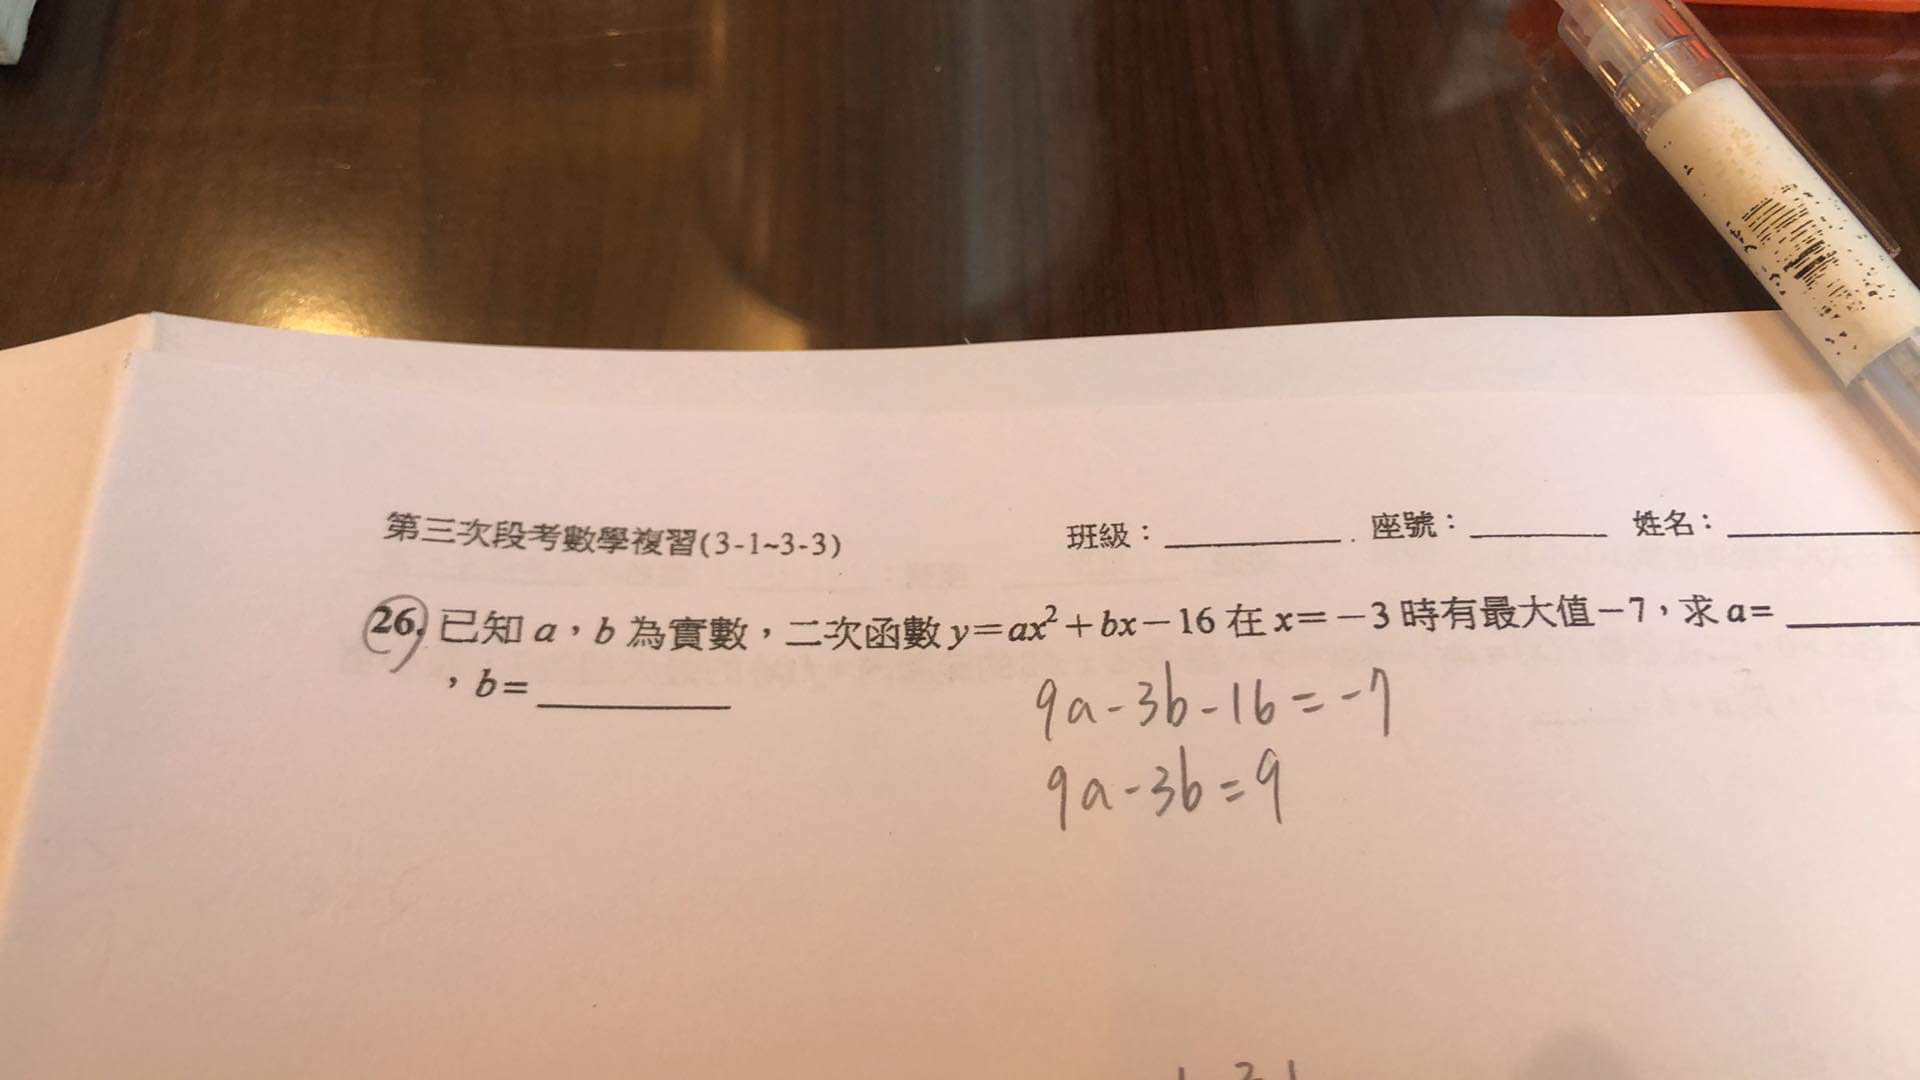 第三次段考數學複習(3-1~3-3) 班級：________ 座號：________ 姓名：________
26. 已知 a，b 為實數，二次函數 y=ax²+bx-16 在 x=-3 時有最大值-7，求 a=________
，b=________
9a-3b-16=-7
9a-3b=9